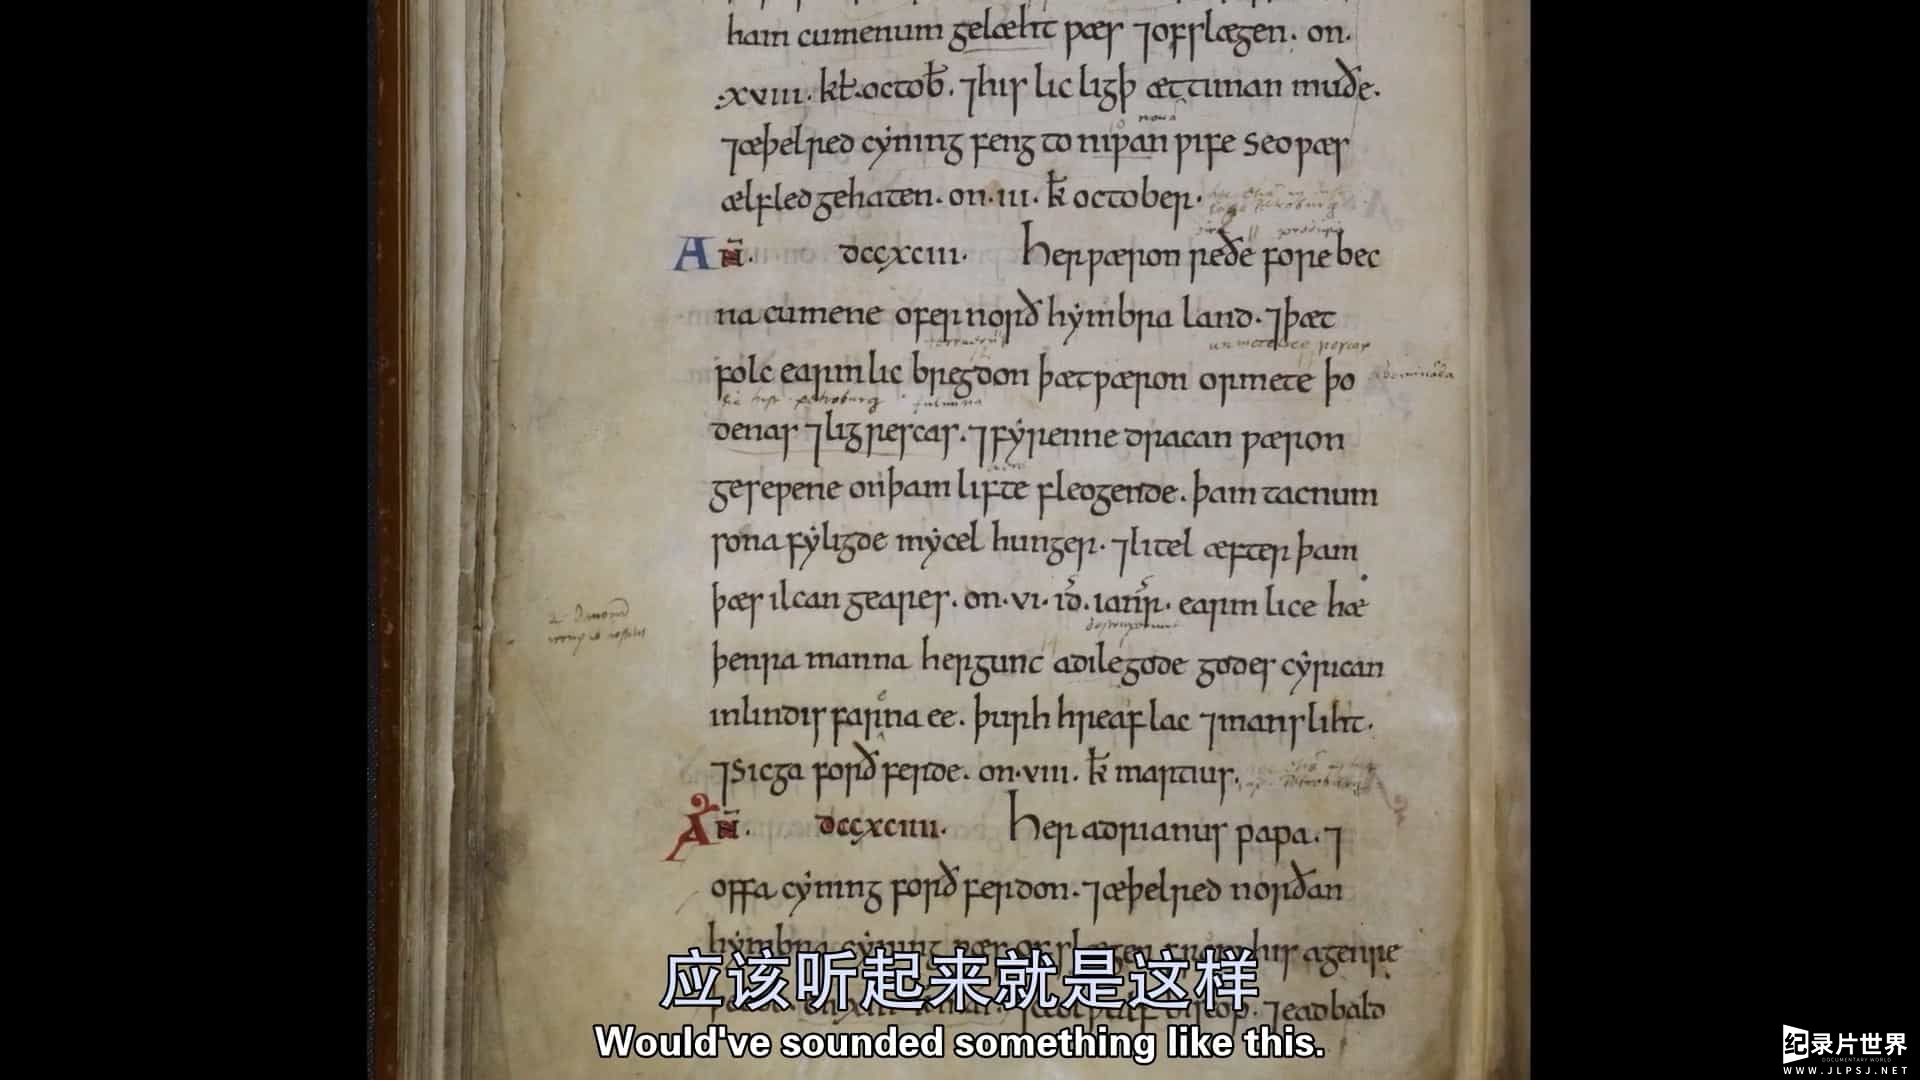 ham cumenum gelæht ƿæs ⁊ofslægen. on.
.xviii. kł.octob̄. ⁊his lic ligþ ættinan muðe.
⁊æþelred cẏning feng to niƿan ƿife seoƿæs
ælfled gehaten. on.iii. k̄ october.
AN̄. dccxciii. Her ƿæron reðe forebec
na cumene ofer norð hẏmbra land. ⁊þæt
folc earmlic bregdon þætƿæron ormete þo
denas ⁊ligrescas. ⁊fẏrenne dracan ƿæron
geseƿene onþam lifte fleogende. þam tacnum
sona fẏligde mẏcel hunger. ⁊litel æfter þam
þæs ilcan geares. on.vi. id̄. ianr̄. earm lice hæ
þenra manna hergunc adilegode godes cẏrican
inlindis farna ee. þurh hreaf lac ⁊mansliht.
⁊Sicga forð ferde. on.viii. k̄ martius.
AN̄. dccxciiii. Her adrianus papa. ⁊
offa cẏning forð ferdon. ⁊æþelred norðan
hẏmbra cẏning ƿæs ofslægen his agenre
⁊eadbald
应该听起来就是这样
Would've sounded something like this.
纪录片世界
DOCUMENTARY WORLD
WWW.JLPSJ.NET